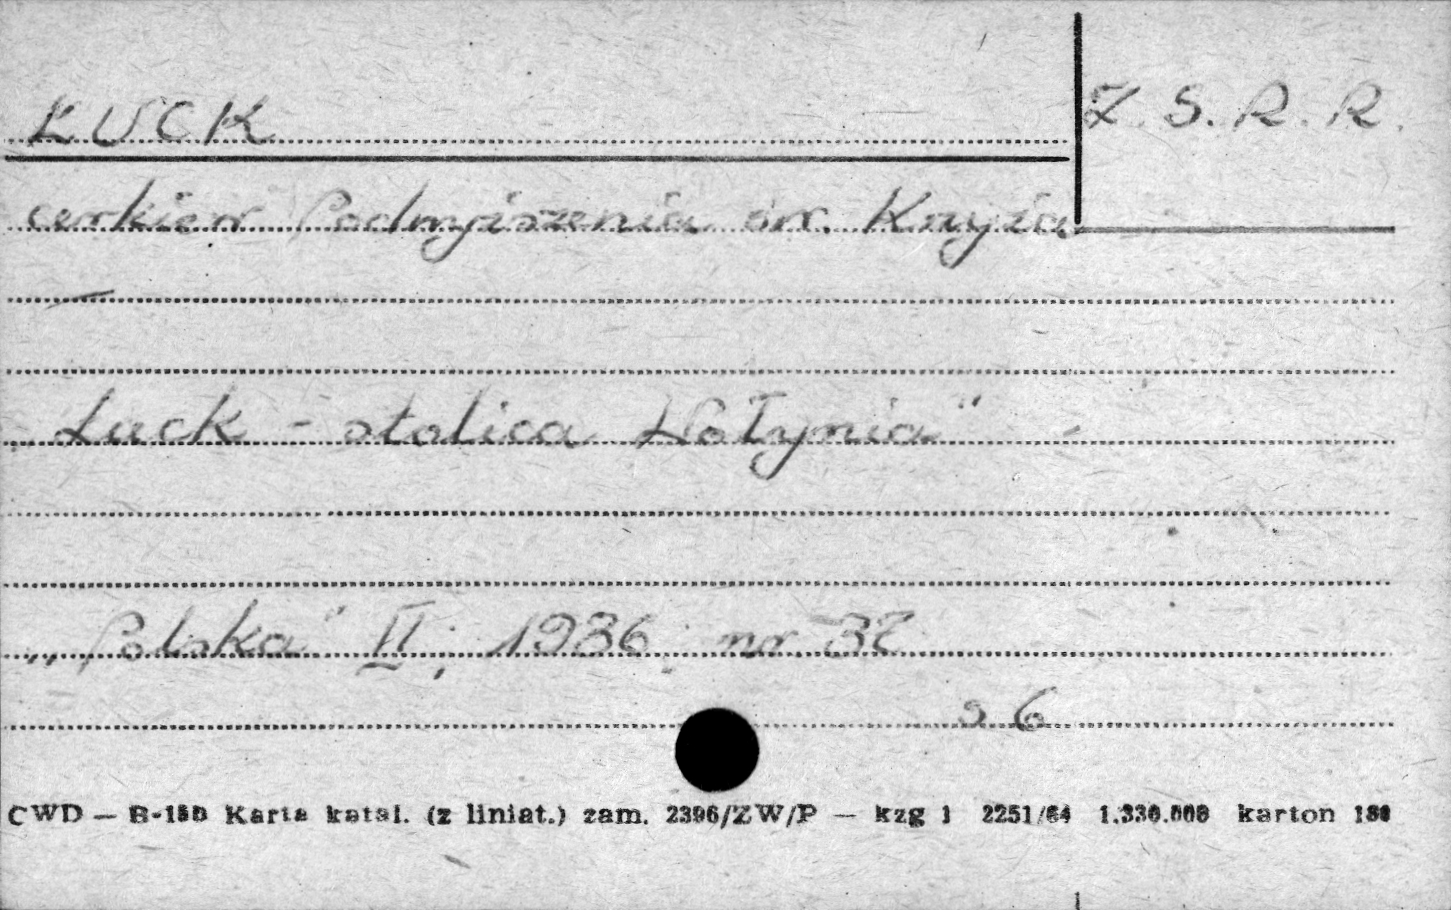 ŁUCK
Z.S.R.R.
cerkiew Podwyższenia św. Krzyża
„Łuck - stolica Wołynia"
„Polska" II; 1936; nr. 37
s 6
CWD — B-15B Karta katal. (z liniat.) zam. 2396/ZW/P — kzg 1 2251/64 1.330.000 karton